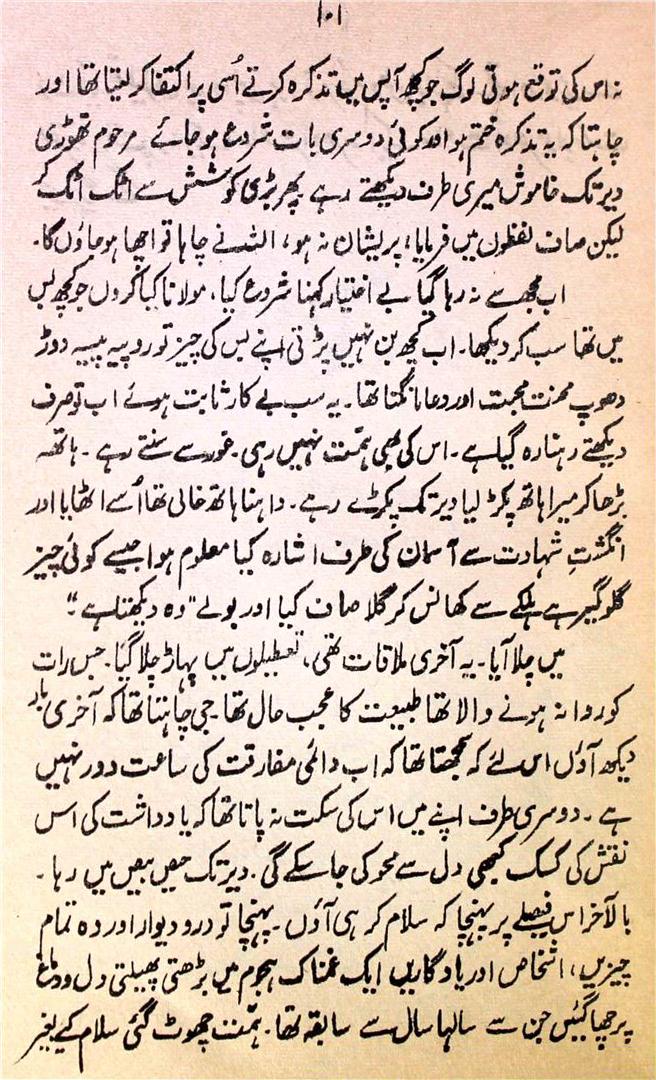 ۱۰۱
نہ اس کی توقع ہوتی لوگ جو کچھ آپس میں تذکرہ کرتے اُسی پر اکتفا کر لیتا تھا اور
چاہتا کہ یہ تذکرہ ختم ہو اور کوئی دوسری بات شروع ہو جائے ۔ مرحوم تھوڑی
دیر تک خاموش میری طرف دیکھتے رہے پھر بڑی کوشش سے اٹک اٹک کر
لیکن صاف لفظوں میں فرمایا، پریشان نہ ہو، اللہ نے چاہا تو اچھا ہو جاؤں گا۔
اب مجھ سے نہ رہا گیا بے اختیار کہنا شروع کیا، مولانا کیا کروں جو کچھ بس
میں تھا سب کر دیکھا۔ اب کچھ بن نہیں پڑتی اپنے بس کی چیز تو روپیہ پیسہ دوڑ
دھوپ محنت محبت اور دعا مانگنا تھا۔ یہ سب بے کار ثابت ہوئے اب تو صرف
دیکھتے رہنا رہ گیا ہے۔ اس کی بھی ہمّت نہیں رہی۔ غور سے سنتے رہے ۔ ہاتھ
بڑھا کر میرا ہاتھ پکڑ لیا دیر تک پکڑے رہے ۔ داہنا ہاتھ خالی تھا اُسے اٹھایا اور
انگشتِ شہادت سے آسمان کی طرف اشارہ کیا معلوم ہوا جیسے کوئی چیز
گلوگیر ہے ہلکے سے کھانس کر گلا صاف کیا اور بولے "وہ دیکھتا ہے"
میں چلا آیا۔ یہ آخری ملاقات تھی، تعطیلوں میں پہاڑ چلا گیا۔ جس رات
کو روانہ ہونے والا تھا طبیعت کا عجب حال تھا۔ جی چاہتا تھا کہ آخری بار
دیکھ آؤں اس لئے کہ سمجھتا تھا کہ اب دائمی مفارقت کی ساعت دور نہیں
ہے ۔ دوسری طرف اپنے میں اس کی سکت نہ پاتا تھا کہ یادداشت کی اس
نقش کی کسک کبھی دل سے محو کی جا سکے گی ۔ دیر تک حیص بیص میں رہا ۔
بالآخر اس فیصلے پر پہنچا کہ سلام کر ہی آؤں ۔ پہنچا تو در و دیوار اور وہ تمام
چیزیں، اشخاص اور یادگاریں ایک غمناک ہجوم میں بڑھتی پھیلتی دل و دماغ
پر چھا گئیں جن سے سالہا سال سے سابقہ تھا۔ ہمّت چھوٹ گئی سلام کے بغیر